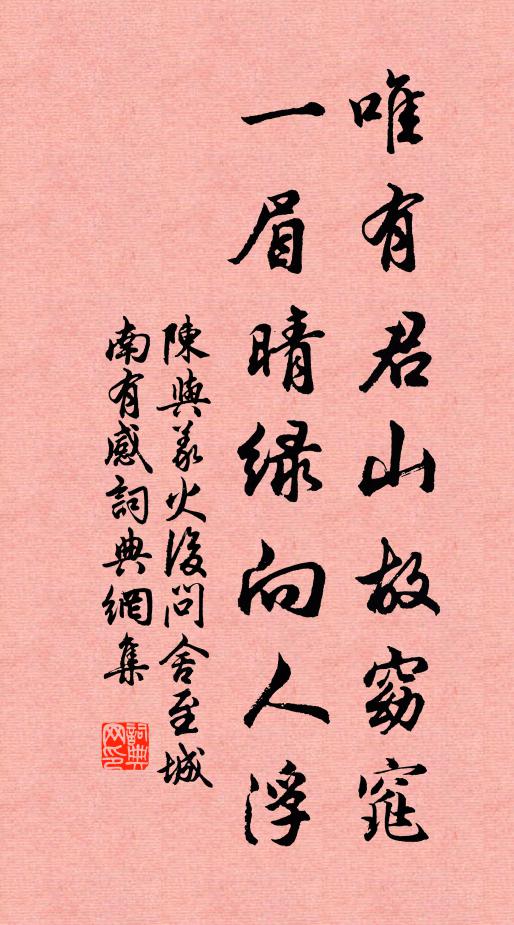 唯有君山故窈窕
一眉晴绿向人浮
陳與義火後問舍至城
南有感詞典網集
詞典网印